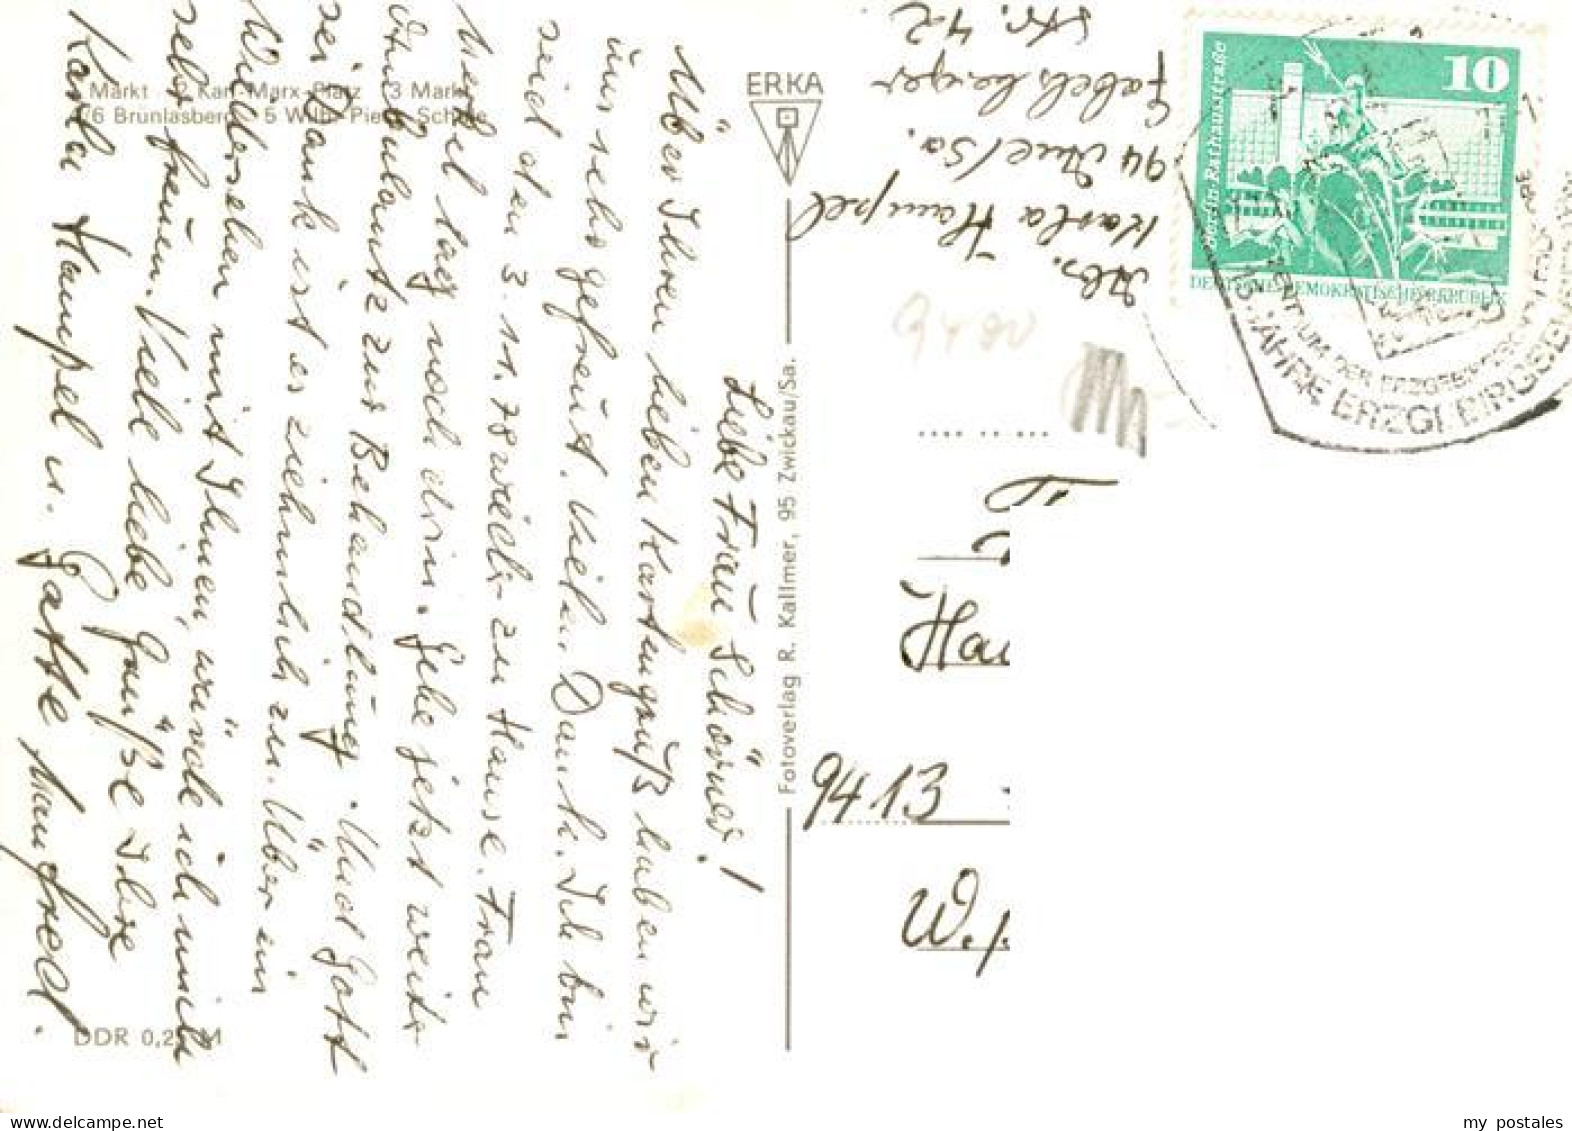 1 Markt 2 Karl-Marx-Platz 3 Markt
4/6 Brünlasberg 5 Wilh.-Pieck-Schule
ERKA
Fotoverlag R. Kallmer, 95 Zwickau/Sa.
DDR 0,25 M
Liebe Frau Schörner!
Über Ihren lieben Kartengruß haben wir
uns sehr gefreut. Vielen Dank. Ich bin
seid dem 3.11.78 wieder zu Hause. Frau
liegt noch drin. Gehe jetzt weiter
ambulant zur Behandlung. Und Gott
sei Dank ist es ziehmlich zu. Über ein
Wiedersehen mit Ihnen, würde ich mich
sehr freuen. Viele liebe Grüße Ihre
Karla Hampel u. Gatte Manfred.
Abs.
Karla Hampel
94 Aue/Sa.
Gabelsberger
Str. 42
9400
10
Berlin, Rathausstraße
DEUTSCHE DEMOKRATISCHE REPUBLIK
ZENTRUM DER ERZGEBIRGS
JAHRE ERZGEBIRGSE
Hau
9413
W.
my postales